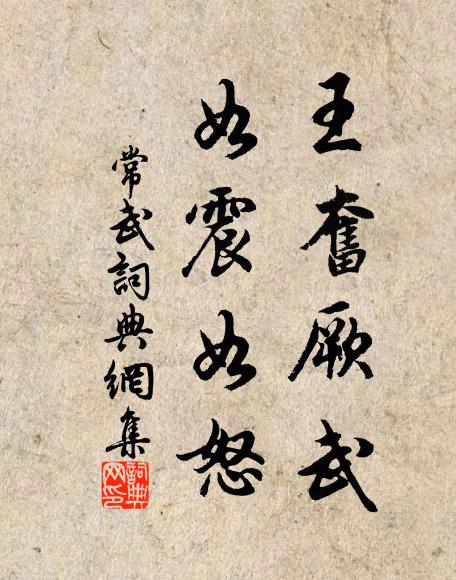 王奮厥武
如震如怒
常武詞典網集
詞典网印